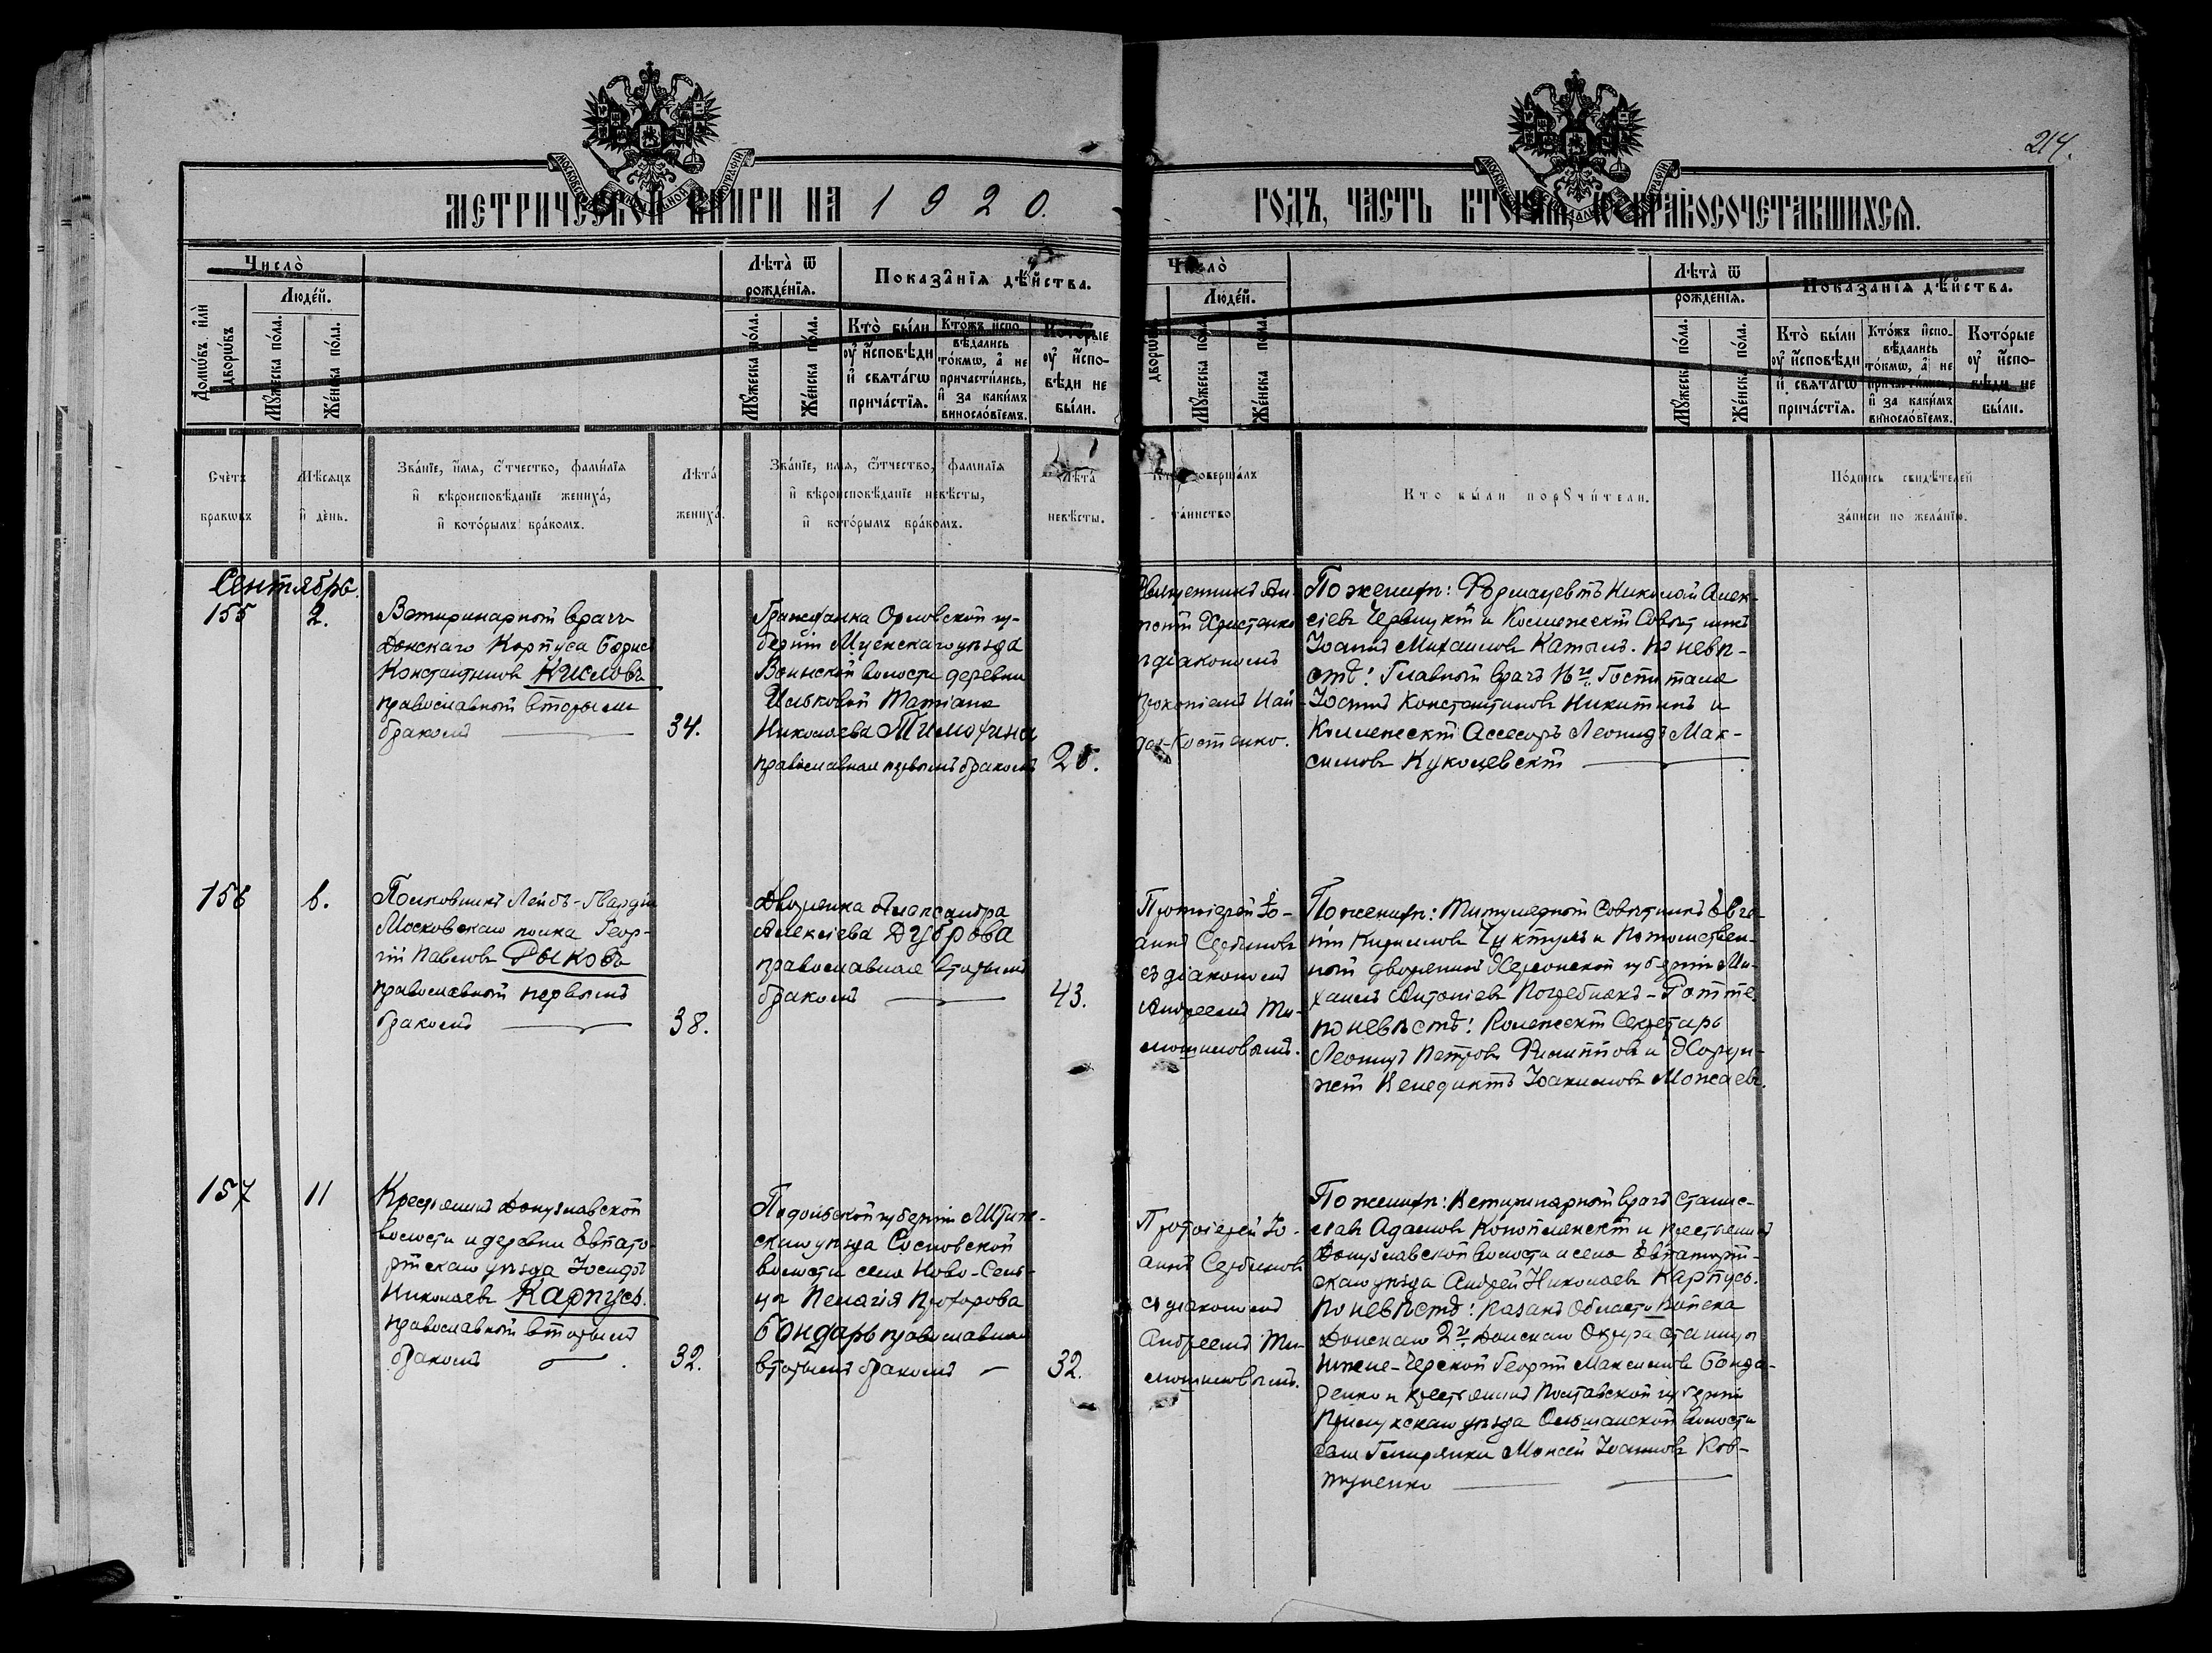 214.
МЕТРИЧЕСКОЙ КНИГИ НА 1920.
ГОДЪ, ЧАСТЬ ВТОРАЯ, О БРАКОСОЧЕТАВШИХСЯ.
Число̀
Домѡвъ и҆лѝ дворѡвъ
Люде́й.
Мꙋ́жеска по́ла.
Же́нска по́ла.
Лѣта̀ ѿ рожде́нїѧ.
Мꙋ́жеска по́ла.
Же́нска по́ла.
Показа̑нїѧ дѣ́йства.
Кто̀ бы́ли оу҆ и҆сповѣди и҆ свѧта́гѡ прича́стїѧ.
Кто́жъ и҆сповѣдались то́кмѡ, а҆ не причасти́лись, и҆ за каки́мъ винословїемъ.
Кото́рые оу҆ и҆сповѣди не бы́ли.
Число̀
дворѡвъ
Люде́й.
Мꙋ́жеска по́ла.
Же́нска по́ла.
Лѣта̀ ѿ рожде́нїѧ.
Мꙋ́жеска по́ла.
Же́нска по́ла.
Показа̑нїѧ дѣ́йства.
Кто̀ бы́ли оу҆ и҆сповѣди и҆ свѧта́гѡ прича́стїѧ.
Кто́жъ и҆сповѣдались то́кмѡ, а҆ не причасти́лись, и҆ за каки́мъ винословїемъ.
Кото́рые оу҆ и҆сповѣди не бы́ли.
Счетъ браковъ
Мѣсяцъ и день.
Званіе, имя, отчество, фамилія
и вѣроисповѣданіе жениха,
и которымъ бракомъ.
Лѣта жениха.
Званіе, имя, отчество, фамилія
и вѣроисповѣданіе невѣсты,
и которымъ бракомъ.
Лѣта невѣсты.
Кто совершалъ таинство
Кто были поручители.
Подпись свидѣтелей
записи по желанію.
Сентябрь.
155
2.
Ветиринарный врачъ
Донскаго Корпуса Борис
Константиновъ Кисловъ
православный вторымъ
бракомъ
34.
Гражданка Орловской гу-
берніи Мценскаго уѣзда
Воинской волости деревни
Ильковой Татіана
Николаева Тимофина
православная первымъ бракомъ
Священникъ Ан-
діакономъ
Костенко.
По женихѣ: Фармацевтъ Николай Алек-
сѣевъ и Коллежскій Совѣтникъ
Іоаннъ Михаиловъ. По невѣ-
стѣ: Главный врачъ 16го Госпиталя
Іоаннъ Константиновъ Никитинъ и
Коллежскій Ассесоръ Леонидъ Мак-
симовъ Куколевскій
156
6.
Полковникъ Лейбъ-Гвардіи
Московскаго полка Геор-
гій Павловъ Рыковъ
православный первымъ
бракомъ
38.
Дворянка Александра
Алексіева Дуброва
православная вторымъ
бракомъ
43.
Протоіерей Іо-
аннъ Сербиновъ
съ діакономъ
Андреемъ Ти-
мошиловымъ.
По женихѣ: Титулярный Совѣтникъ Евге-
ній Кириловъ и Потомствен-
ный дворянинъ Херсонской губерніи Ми-
хаилъ Антоніевъ Погребнякъ-
по невѣстѣ: Коллежскій Секретарь
Леонидъ Петровъ Филипповъ и Хорун-
жій Венедиктъ Іоакимовъ Можаевъ.
157
11
Крестьянинъ Донузлавской
волости и деревни Евпато-
рійскаго уѣзда Іосифъ
Николаевъ Карпусь.
православный вторымъ
бракомъ
32.
Подольской губерніи
скаго уѣзда Сосновской
волости села Ново-Сели-
цы Пелагія Прохорова
Бондарь православная
вторымъ бракомъ
32.
Протоіерей Іо-
аннъ Сербиновъ
съ діакономъ
Андреемъ Ти-
мошиловымъ.
По женихѣ: Ветиринарный врачъ Станис-
лавъ Адамовъ и крестьянинъ
Донузлавской волости и села Евпаторій-
скаго уѣзда Андрей Николаевъ Карпусь.
По невѣстѣ: Казакъ Области Войска
Донскаго 2го Донскаго Округа станицы
Нижне-Чирской Георгій Максимовъ Бонда-
ренко и крестьянинъ Полтавской губерніи
Прилукскаго уѣзда Ольшанской волости
села Моисей Іоанновъ Ков-
туненко